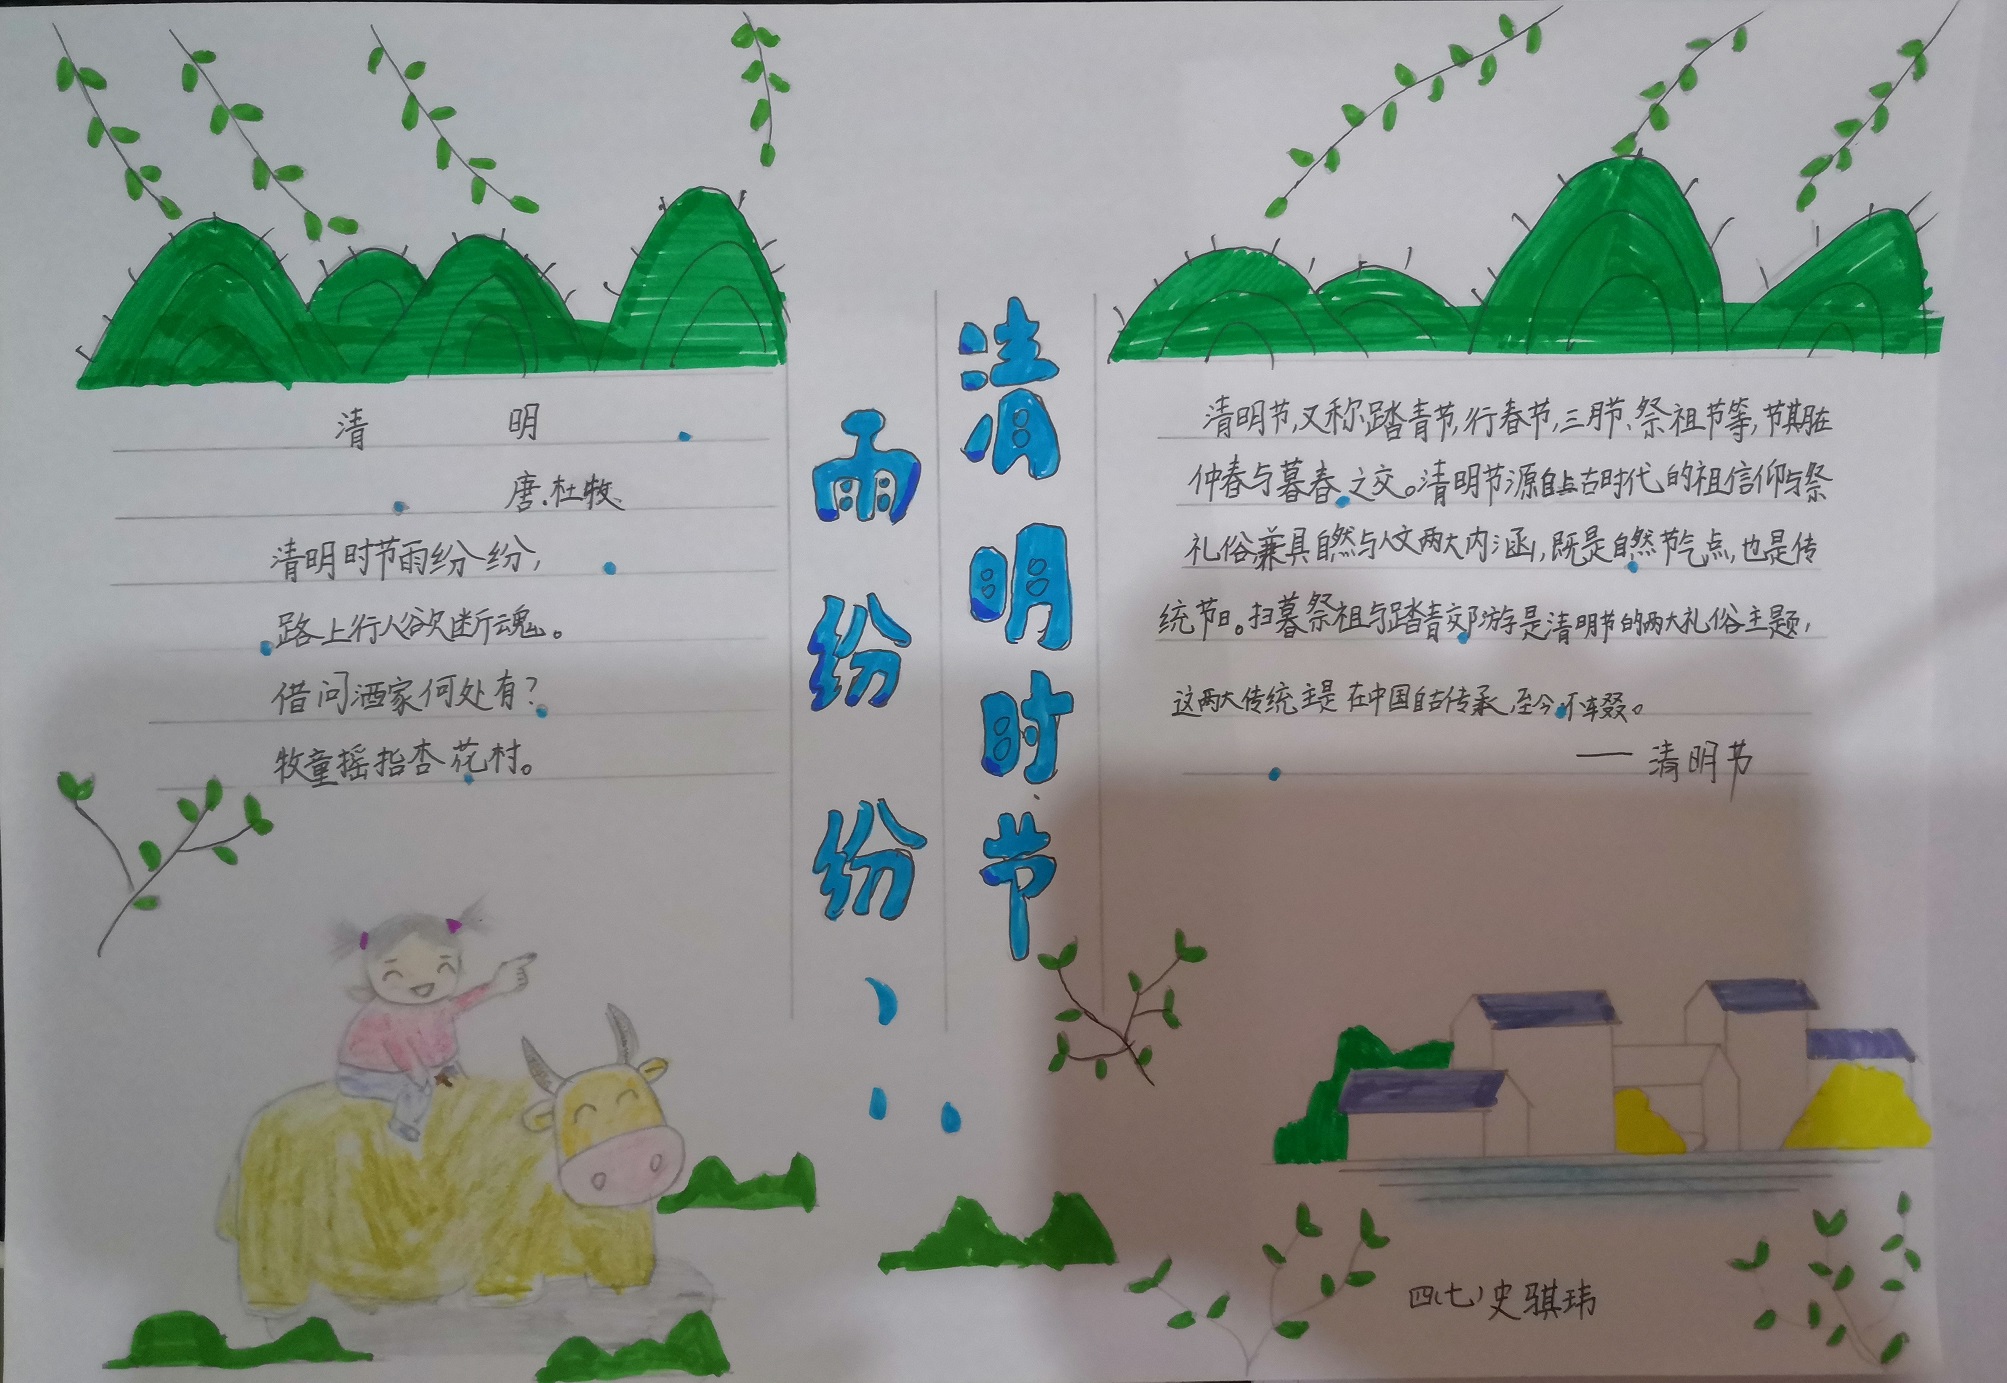 清明时节
雨纷纷
清 明
唐.杜牧.
清明时节雨纷纷,
路上行人欲断魂。
借问酒家何处有?
牧童摇指杏花村。
清明节,又称踏青节,行春节,三月节、祭祖节等,节期在
仲春与暮春之交。清明节源自上古时代的祖信仰与祭
礼俗,兼具自然与人文两大内涵,既是自然节气点,也是传
统节日。扫暮祭祖与踏青郊游是清明节的两大礼俗主题,
这两大传统主是在中国自古传承,至今不辍。
——清明节
四(七)史骐玮